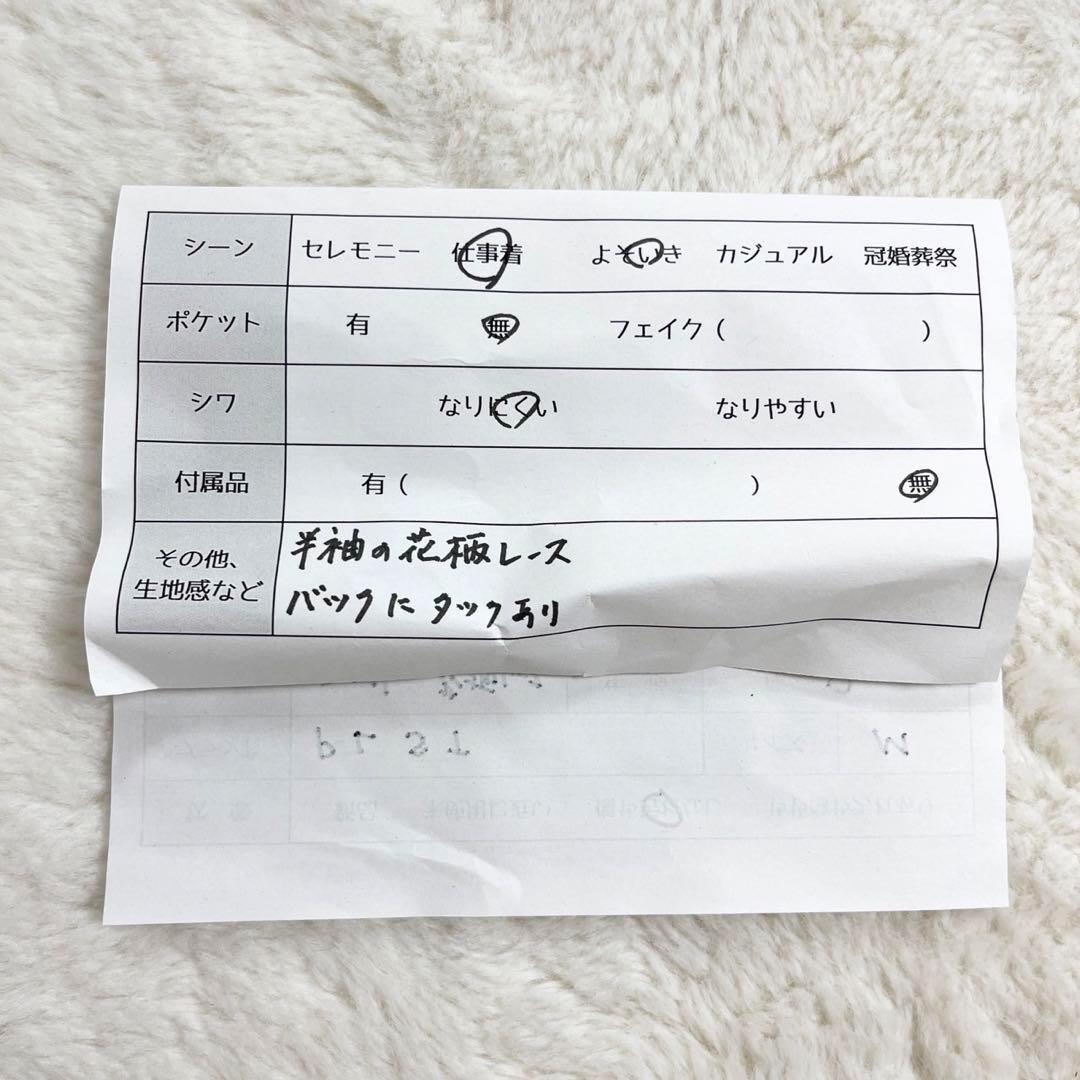 シーン セレモニー 仕事着 よそいき カジュアル 冠婚葬祭
ポケット 有 無 フェイク ( )
シワ なりにくい なりやすい
付属品 有 ( ) 無
その他、
生地感など
半袖の花柄レース
バックにタックあり
PLST M